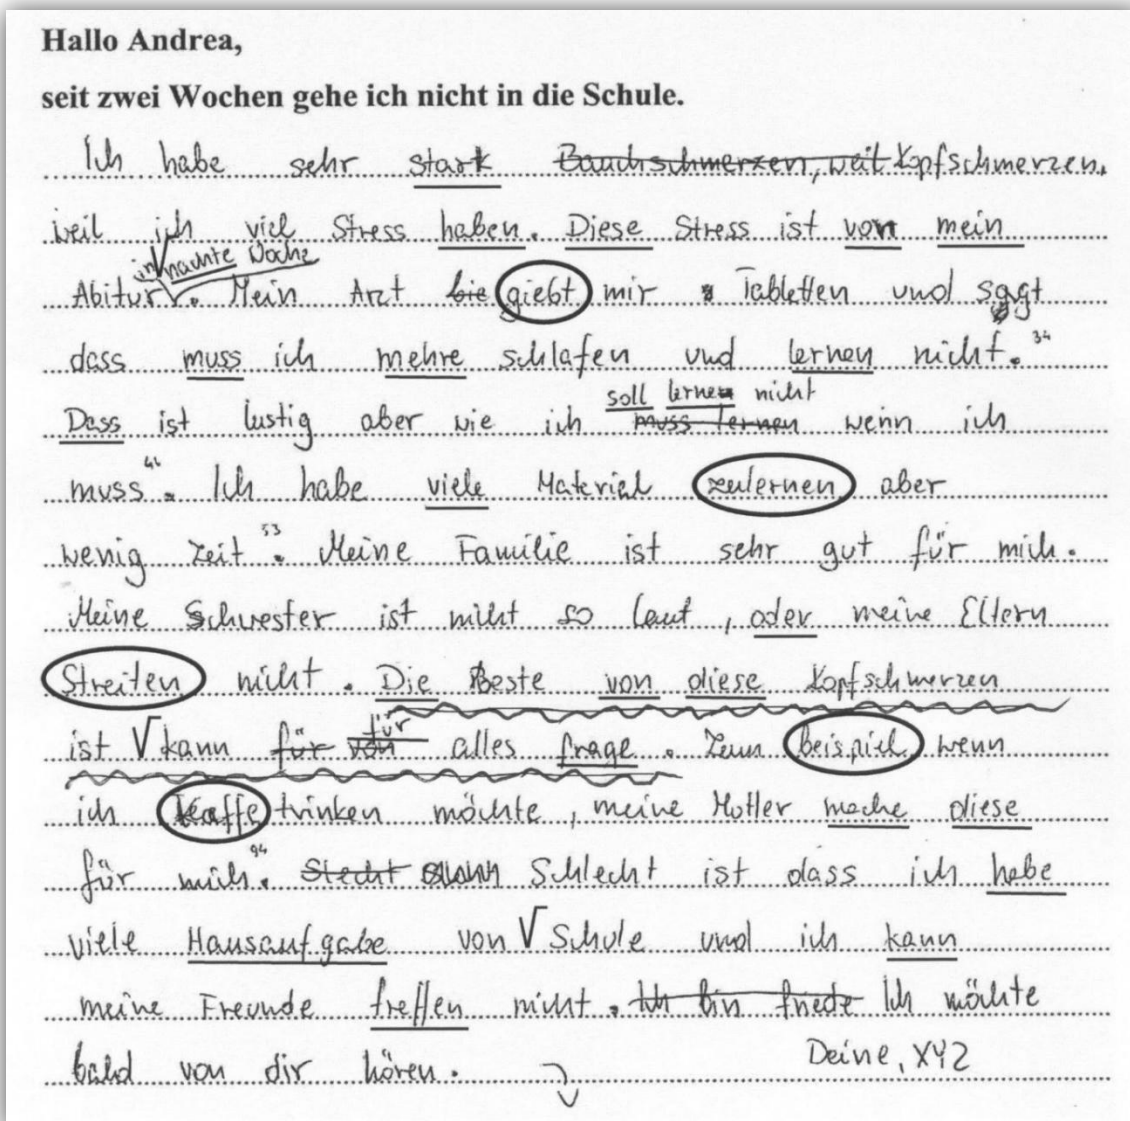 Hallo Andrea,
seit zwei Wochen gehe ich nicht in die Schule.
Ich habe sehr stark Bauchschmerzen, weil Kopfschmerzen.
weil ich viel Stress haben. Diese Stress ist von mein
in nächste Woche
Abitur. Mein Arzt bie giebt mir Tabletten und sagt
dass muss ich mehre schlafen und lernen nicht. 34
soll lernen nicht
Dass ist lustig aber wie ich muss lernen wenn ich
muss 44. Ich habe viele Material zulernen aber
wenig Zeit 53. Meine Familie ist sehr gut für mich.
Meine Schwester ist nicht so laut, oder meine Eltern
Streiten nicht. Die Beste von diese Kopfschmerzen
für
ist √ kann für von alles frage. Zum beispiel wenn
ich Kaffe trinken möchte, meine Motter mache diese
für mich. 94 Stecht Schlecht ist dass ich habe
viele Hausaufgabe von √ Schule und ich kann
meine Freunde treffen nicht. Ich bin friede Ich möchte
bald von dir hören.
Deine, XYZ